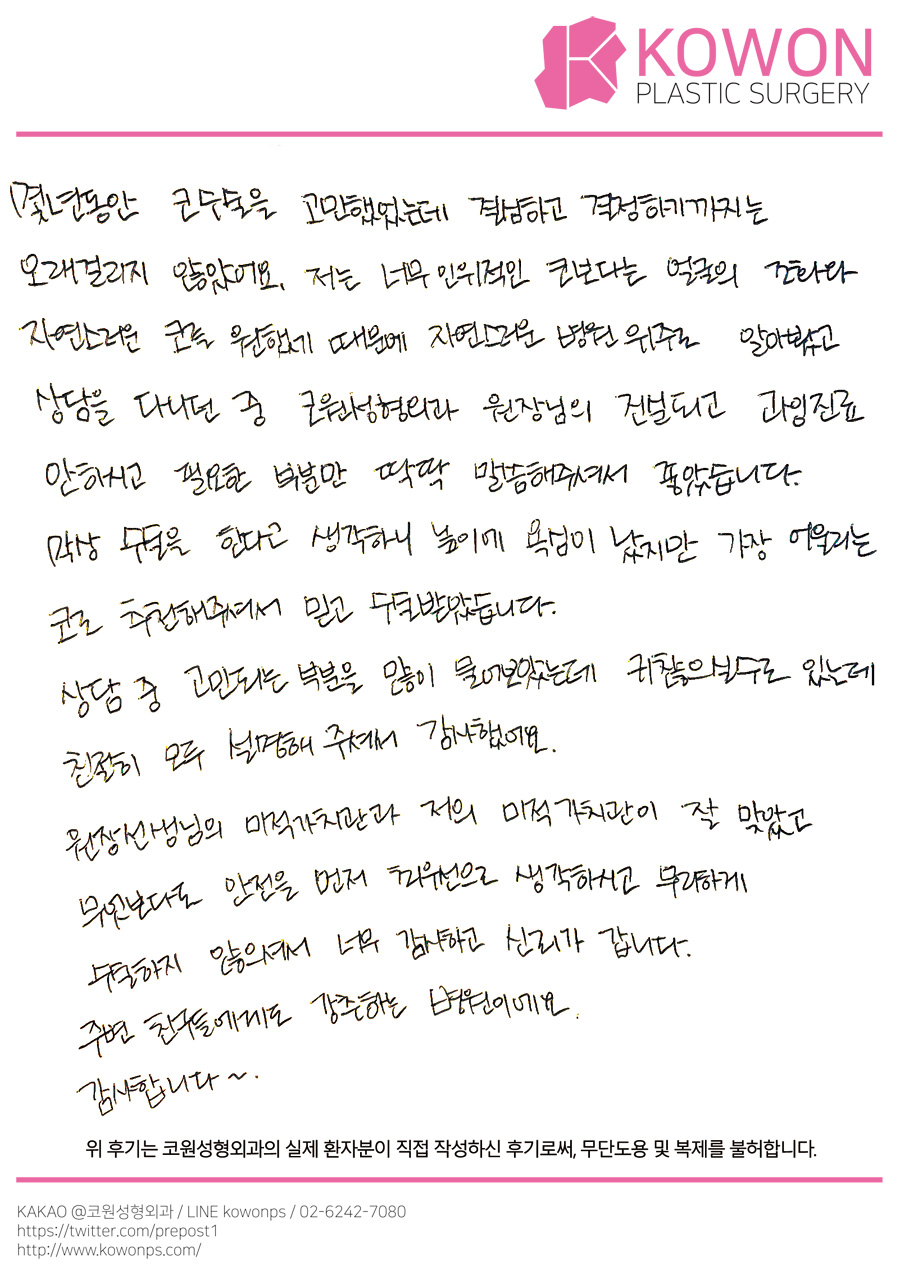 KOWON
PLASTIC SURGERY
몇년동안 코수술을 고민했었는데 결심하고 결정하기까지는
오래걸리지 않았어요. 저는 너무 인위적인 코보다는 얼굴의 조화와
자연스러운 코를 원했기 때문에 자연스러운 병원 위주로 알아봤고
상담을 다니던 중 코원성형외과 원장님의 진료 과잉진료
안하시고 필요한 부분만 딱딱 말씀해주셔서 좋았습니다.
막상 수술을 한다고 생각하니 높이에 욕심이 났지만 가장 어울리는
코로 추천해주셔서 믿고 수술받았습니다.
상담 중 고민되는 부분을 많이 물어보았는데 귀찮으실수도 있는데
친절히 모두 설명해 주셔서 감사했어요.
원장선생님의 미적가치관과 저의 미적가치관이 잘 맞았고
무엇보다도 안전을 먼저 최우선으로 생각하시고 무리하게
수술하지 않으셔서 너무 감사하고 신뢰가 갑니다.
주변 친구들에게도 강추하는 병원이에요.
감사합니다~.
위 후기는 코원성형외과의 실제 환자분이 직접 작성하신 후기로써, 무단도용 및 복제를 불허합니다.
KAKAO @코원성형외과 / LINE kowonps / 02-6242-7080
https://twitter.com/prepost1
http://www.kowonps.com/